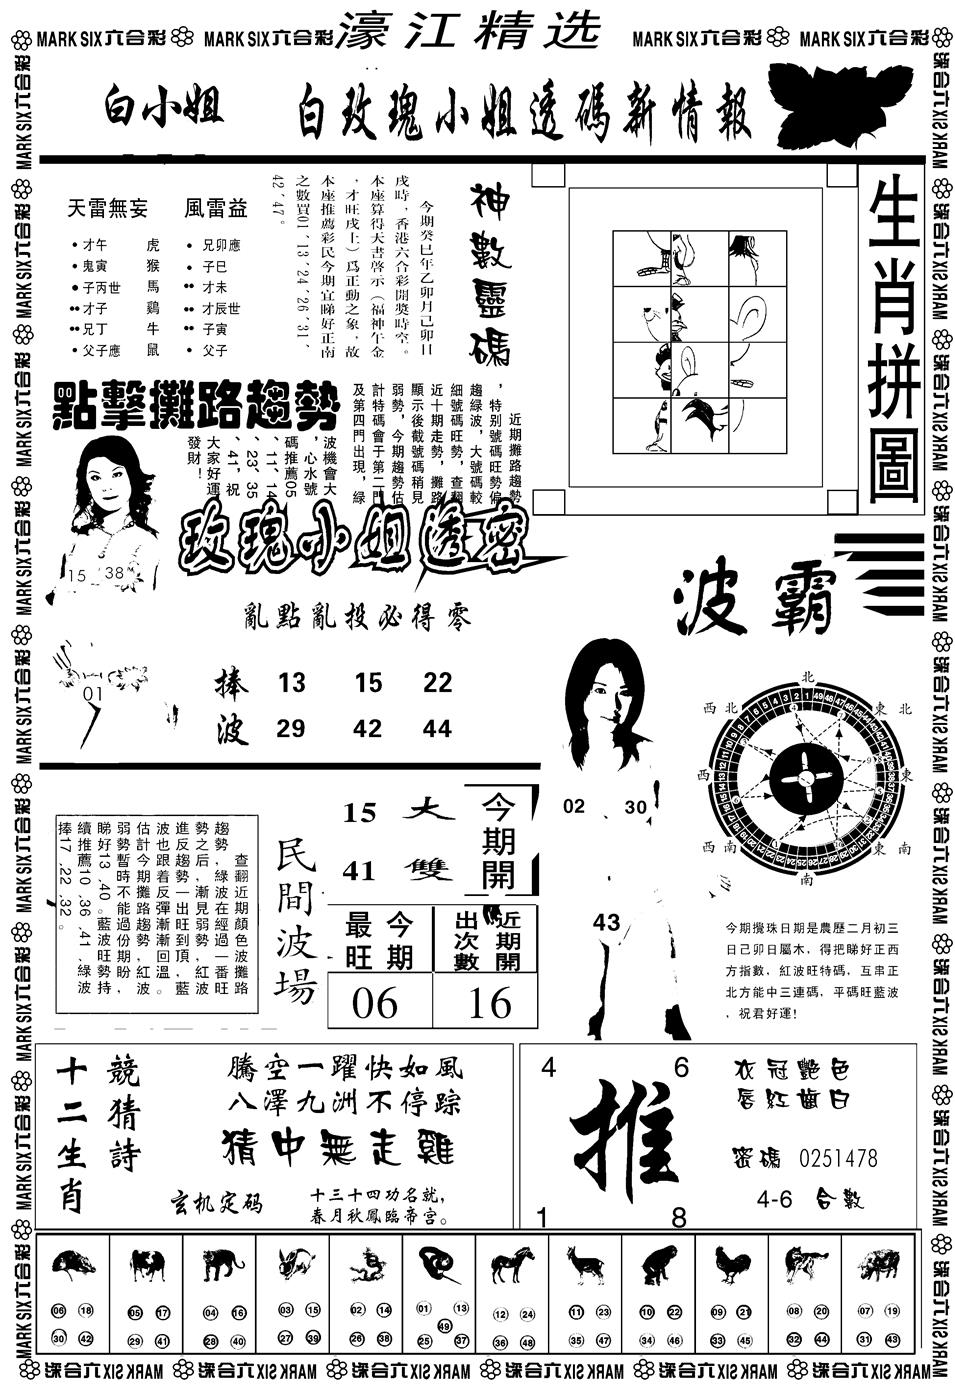 MARK SIX六合彩
MARK SIX六合彩
濠江精选
MARK SIX六合彩
MARK SIX六合彩
白小姐
白玫瑰小姐透碼新情報
天雷無妄
風雷益
才午 虎
鬼寅 猴
子丙世 馬
才子 鷄
兄丁 牛
父子應 鼠
兄卯應
子巳
才未
才辰世
子寅
父子
神數靈碼
今期癸巳年乙卯月己卯日
戌時，香港六合彩開獎時空。
本座算得天書啓示（福神午金
，才旺戌土）爲正動之象，故
本座推薦彩民今期宜睇好正南
之數買01﹑13﹑24﹑26﹑31﹑
42﹑47。
生肖拼圖
點擊攤路趨勢
近期攤路趨勢
，特别號碼旺勢偏
趨緑波，大號碼較
細號碼旺勢，查翻
近十期走勢，攤路
顯示後截號碼稍見
弱勢，今期趨勢估
計特碼會于第二門
及第四門出現，緑
波機會大
，心水號
碼推薦05
﹑11﹑14
﹑23﹑35
﹑41，祝
大家好運
發財！
15 38
01
玫瑰小姐透密
亂點亂投必得零
捧波
13 15 22
29 42 44
波霸
北
東北
東
東南
南
西南
西
西北
02 30
43
今期攪珠日期是農歷二月初三
日己卯日屬木，得把睇好正西
方指數，紅波旺特碼，互串正
北方能中三連碼，平碼旺藍波
，祝君好運！
查翻近期顔色波攤路
趨勢，緑波在經過一番旺
勢之后，漸見弱勢，紅波
進反趨勢一出旺到頂，藍
波也跟着反彈漸漸回溫。
估計今期攤路趨勢紅波
弱勢暫時不能過份期盼，
睇好13﹑40。藍波旺勢持
續推薦10﹑36﹑41﹑緑波
捧17﹑22﹑32。
民間波場
15 大
41 雙
今期開
今期最旺
近期開出次數
06 16
十二生肖
競猜詩
騰空一躍快如風
八澤九洲不停踪
猜中無走雞
玄机定码
十三十四功名就，
春月秋鳳臨帝宫。
4 6
推
1 8
衣冠艷色
唇紅齒白
密碼 0251478
4-6 合數
06 18 30 42
05 17 29 41
04 16 28 40
03 15 27 39
02 14 26 38
01 13 49 25 37
12 24 36 48
11 23 35 47
10 22 34 46
09 21 33 45
08 20 32 44
07 19 31 43
MARK SIX六合彩
MARK SIX六合彩
MARK SIX六合彩
MARK SIX六合彩
MARK SIX六合彩
MARK SIX六合彩